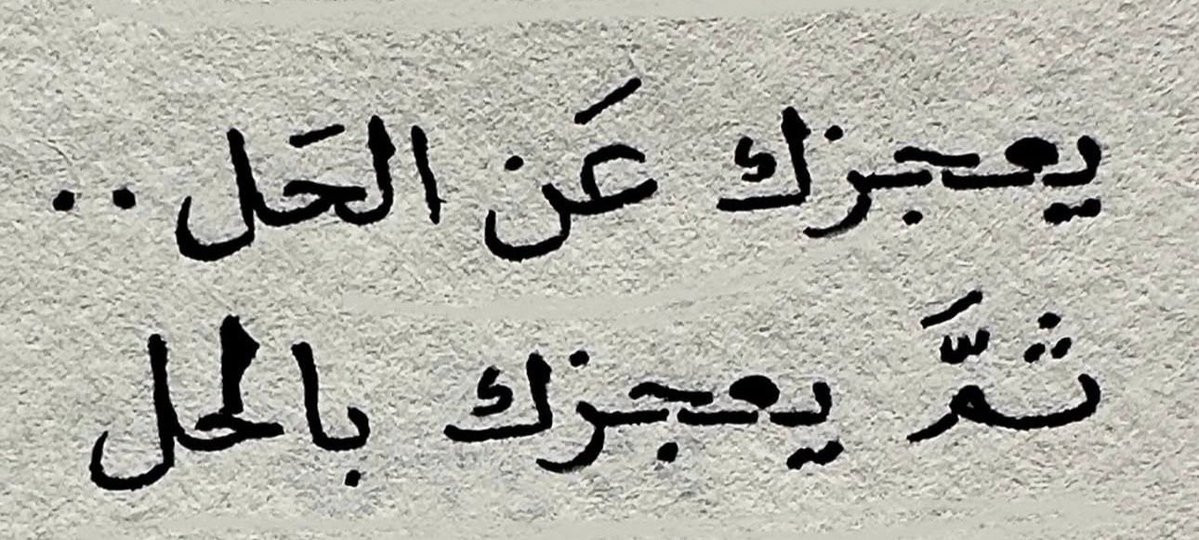 يعجزك عَن الحَل ..
ثمَّ يعجزك بالحل